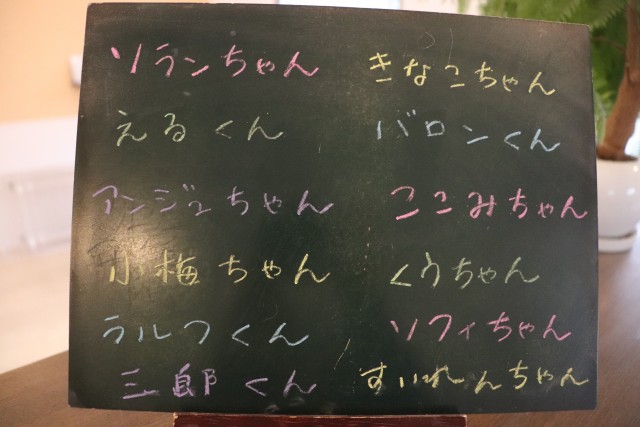 ソランちゃん
えるくん
アンジュちゃん
小梅ちゃん
ラルフくん
三郎くん
きなこちゃん
バロンくん
ここみちゃん
くうちゃん
ソフィちゃん
すいれんちゃん